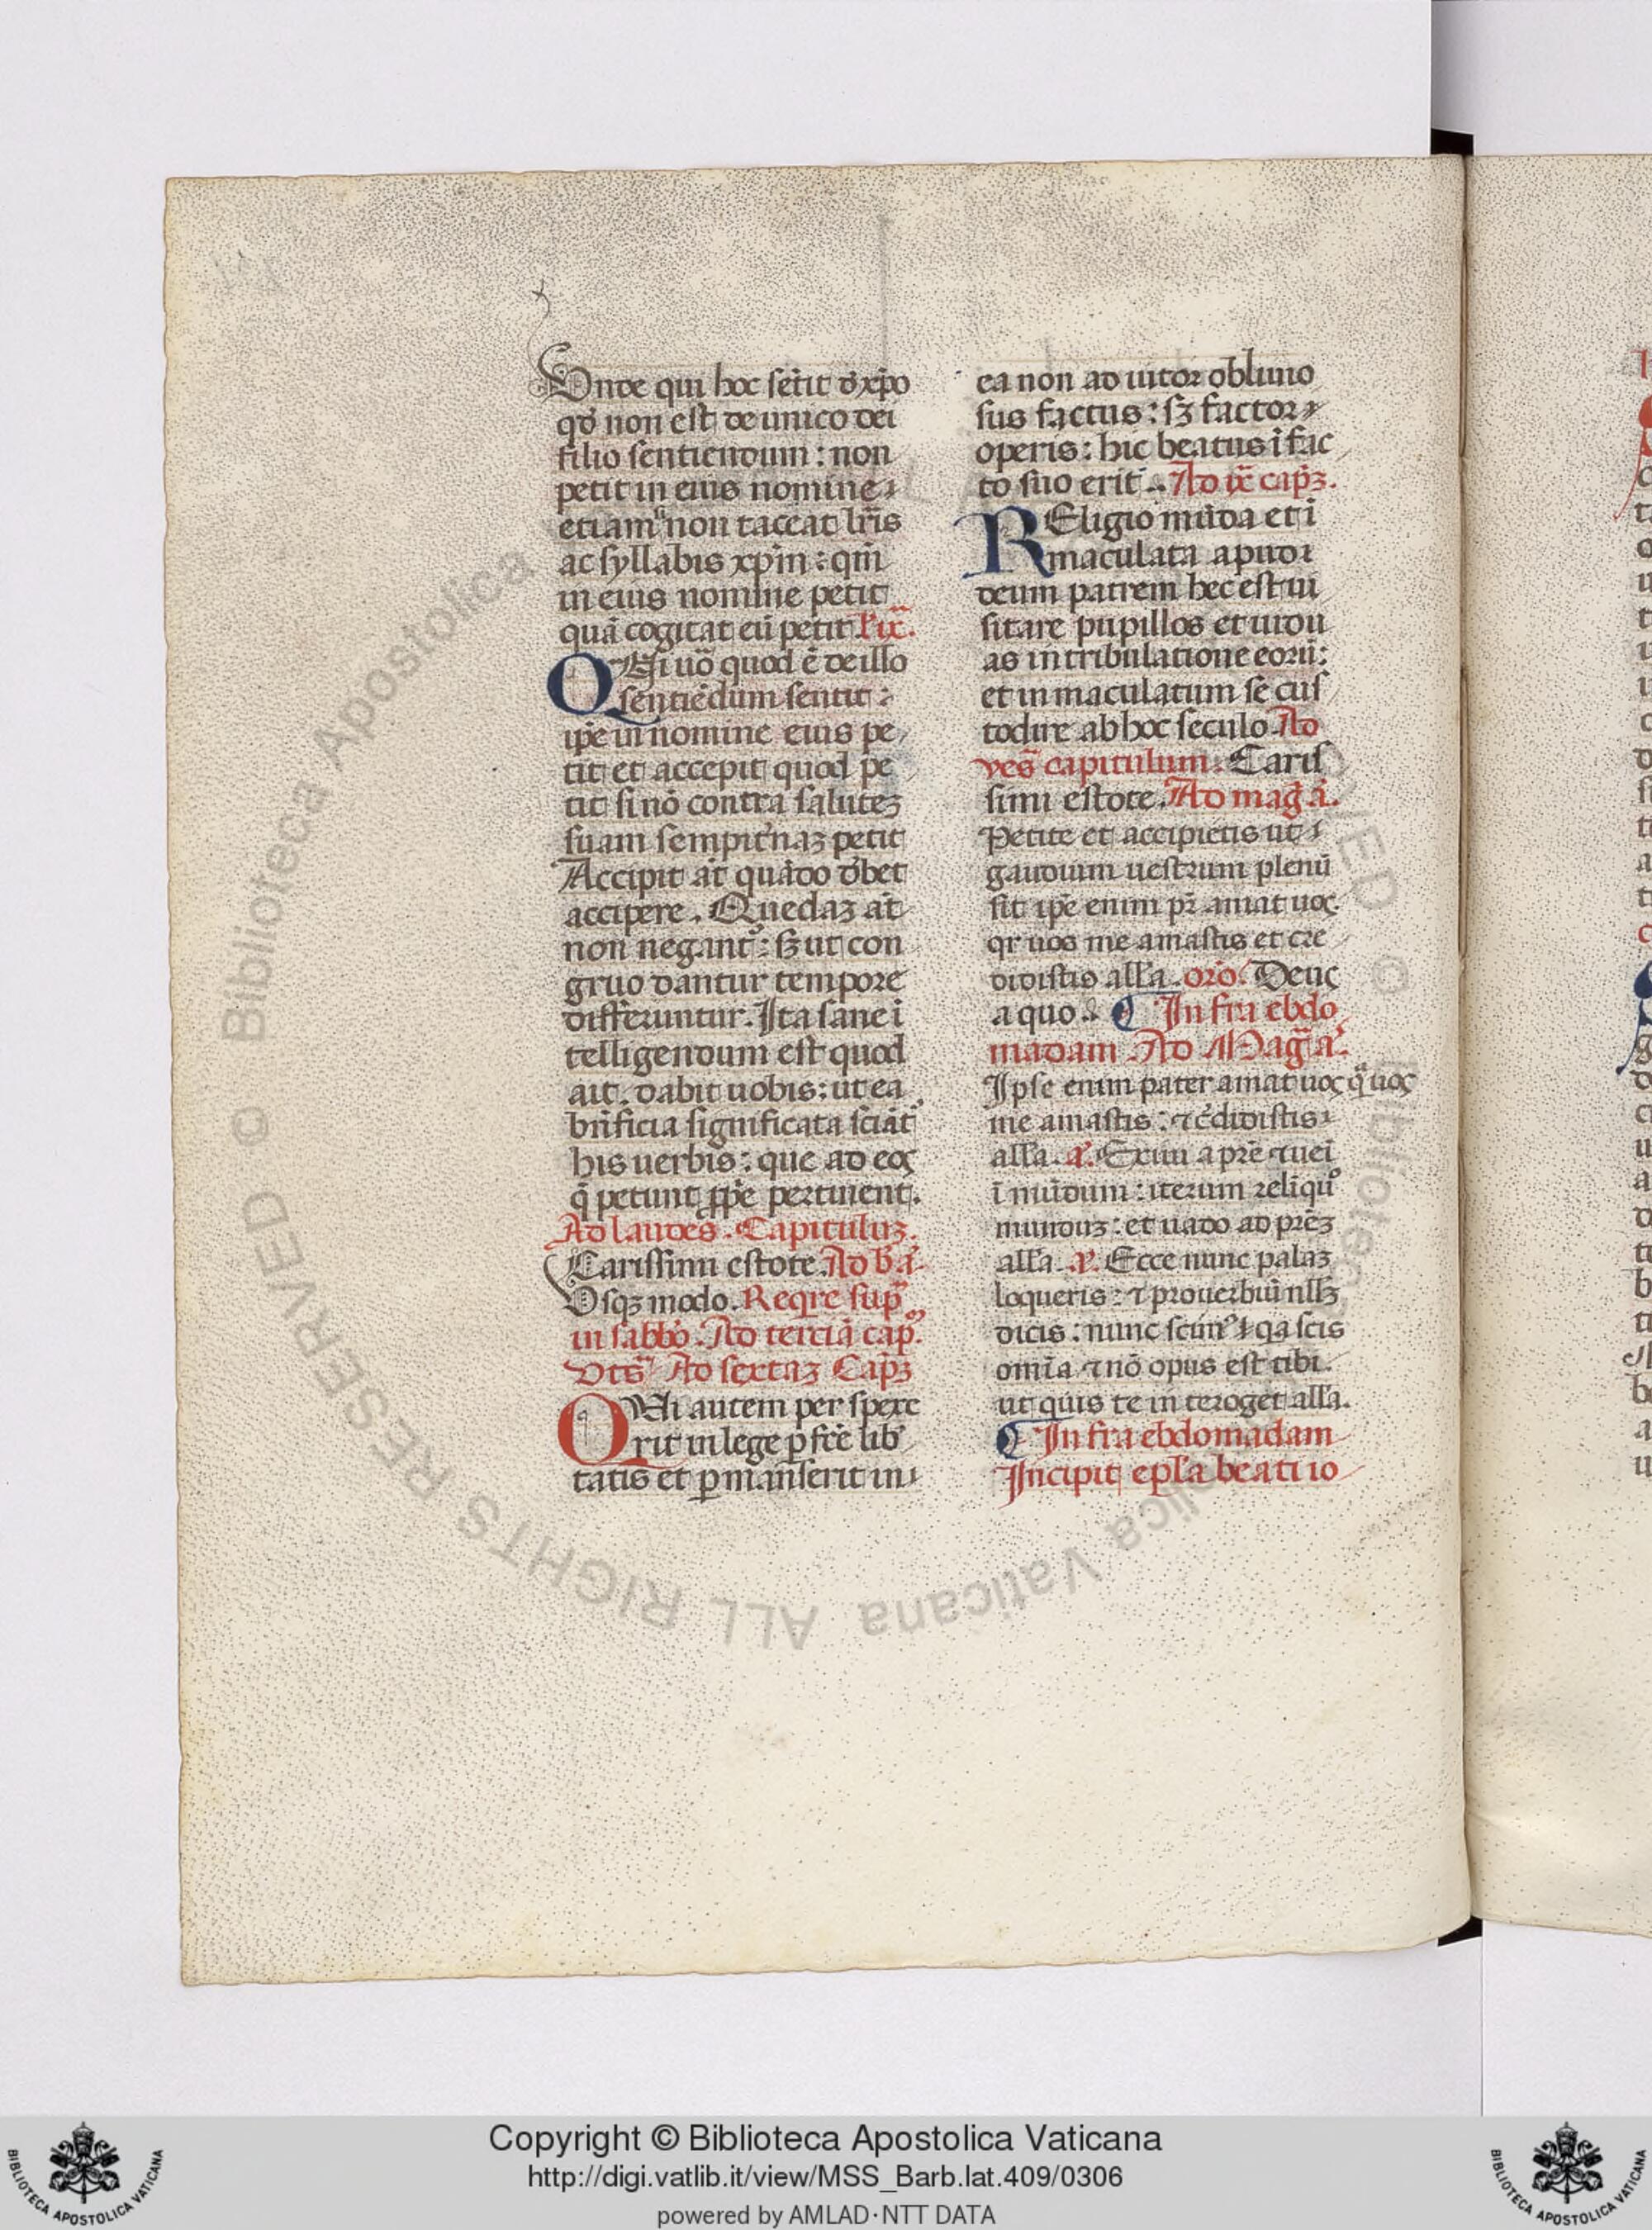 Unde qui hoc sẽtit đ xp̃o
qđ non est de unico dei
filio sentiendum : non
petit in eius nomine
etiam si non taceat lr̃is
ac syllabis xp̃m : qm̃
in eius nomine petit
quẽ cogitat cũ petit. L'ix.
QUi uõ quod ẽ de illo
sentiẽdum sentit :
ip̃e in nomine eius pe
tit et accepit quod pe
tit si nõ contra saluteꝫ
suam sempit̃naꝫ petit
Accipit at̃ quãdo đbet
accipere. Quedaꝫ at̃
non negantꝰ : sꝫ ut con
gruo dantur tempore
differuntur. Ita sane ĩ
telligendum est quod
ait. dabit uobis : ut ea
bñficia significata sciãt̃
his uerbis : que ad eos
q̃ petunt ꝓpe pertinent.
Ad laudes. Capituluꝫ.
Carissimi estote. Ad b̃ã.
Usqꝫ modo. Reqre sup̃
in sabb̃o. Ad terciã cap̃.
Vts̃ Ad sextaꝫ Cap̃ꝫ
QUi autem per spexe
rit in lege ꝑfcẽ lib̃
tatis et ꝑmanserit in
ea non auditor obliuio
sus factus : sꝫ factor
operis : hic beatus ĩ fac
to suo erit. Ad ix̃ cap̃ꝫ.
REligio mũda et ĩ
maculata apud
deum patrem hec est ui
sitare pupillos et uidu
as in tribulatione eorũ :
et inmaculatum se cus
todire ab hoc seculo. Ad
ves̃ capitulum. Caris
simi estote. Ad mag̃ ã.
Petite et accipietis ut
gaudium uestrum plenũ
sit ip̃e enim pr̃ amat uos
qr uos me amastis et cre
didistis all'a. or̃o. Deus
a quo. ¶ In fra ebdo
madam Ad Mag̃ ã.
Ipse enim pater amat uos q̃ uos
me amastis : ⁊ c̃didistis
all'a. a. Exiui a pr̃e ⁊ uei
ĩ mũdum : iterum reliquꝰ
munduꝫ : et uado ad pr̃eꝫ
all'a. a. Ecce nunc palaꝫ
loqueris : ⁊ prouerbiũ nll'ꝫ
dicis : nunc scimꝰ qa scis
omĩa ⁊ nõ opus est tibi
ut quis te in teroget all'a.
¶ In fra ebdomadam
Incipit ep̃l'a beati io
Copyright © Biblioteca Apostolica Vaticana
http://digi.vatlib.it/view/MSS_Barb.lat.409/0306
powered by AMLAD·NTT DATA